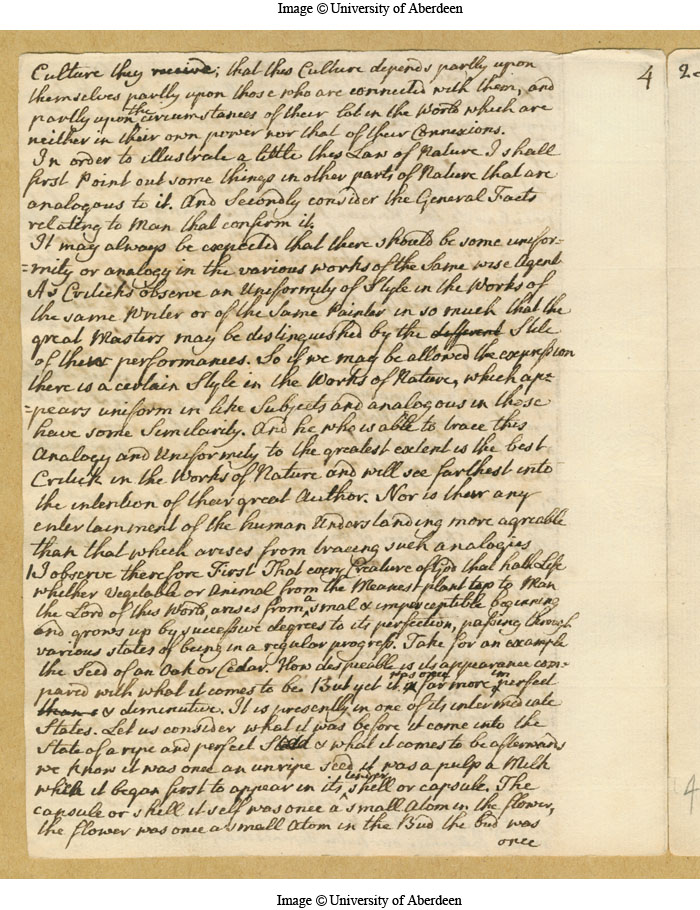 Image © University of Aberdeen
4
2
Culture they receive; that this Culture depends partly upon
themselves partly upon those who are connected with them, and
partly upon the circumstances of their lot in the World which are
neither in their own power nor that of their Connexions.
In order to illustrate a little this Law of Nature I shall
first Point out some things in other parts of Nature that are
analogous to it. And Secondly consider the General Facts
relating to Man that confirm it.
It may always be expected that there should be some unifor-
=mity or analogy in the various works of the Same wise Agent
As Criticks observe an Uniformity of Style in the Works of
the same Writer or of the Same Painter in so much that the
great Masters may be distinguished by the different Stile
of their performances. So if we may be allowed the expression
there is a certain Style in the Works of Nature, which ap=
=pears uniform in like Subjects and analogous in those
have some Similarity. And he who is able to trace this
Analogy and Uniformity to the greatest extent is the best
Critick in the Works of Nature and will see farthest into
the intention of their great Author. Nor is their any
entertainment of the human Understanding more agreable
than that which arises from tracing such analogies
1 I observe therefore First That every Creature of God that hath Life
whether vegetable or Animal from the Meanest plant to Man
the Lord of this World, arises from a smal & imperceptible beginning
and grows up by successive degrees to its perfection, passing through
various states of being in a regular progress. Take for an example
the Seed of an Oak or Cedar. How despicable is its appearance com-
pared with what it comes to be. But yet it was once far more imperfect
than & diminutive. It is presently in one of its intermediate
States. Let us consider what it was before it came into the
State of a ripe and perfect Seed & what it comes to be afterwards
we know it was once an unripe Seed it was a pulp a Milk
which it began first to appear in its tender shell or capsule. The
capsule or shell it self was once a small Atom in the flower,
the flower was once a small Atom in the Bud the bud was
once
4
Image © University of Aberdeen